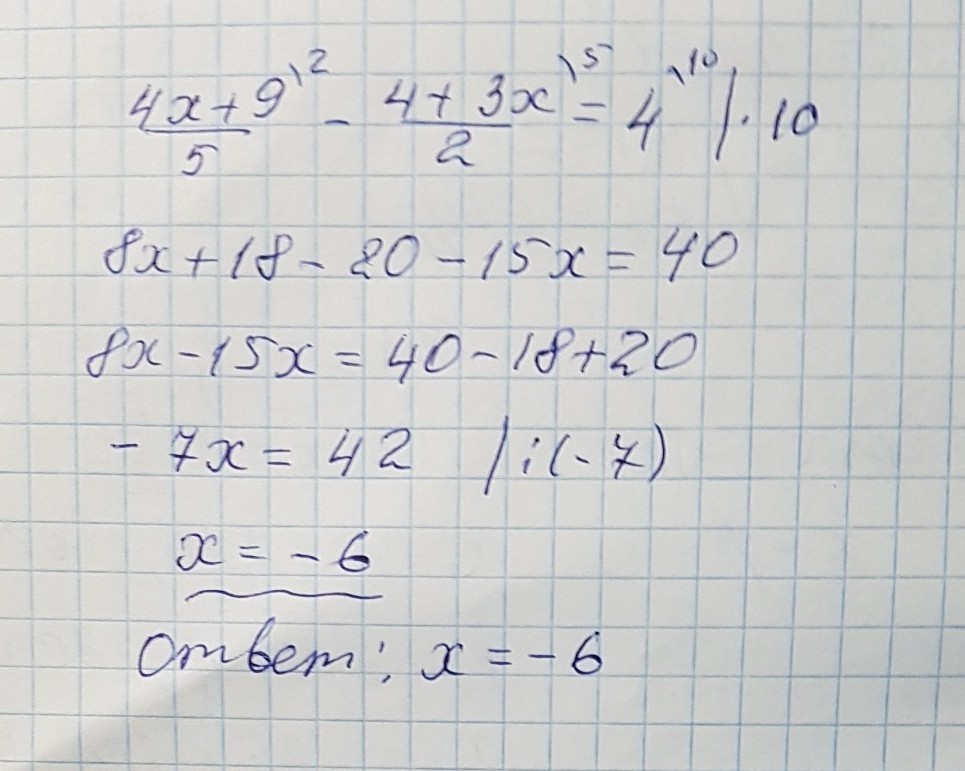 (4x+9)/5 \2 - (4+3x)/2 \5 = 4 \10 | · 10
8x+18-20-15x=40
8x-15x=40-18+20
-7x=42 |:(-7)
x=-6
Ответ: x=-6